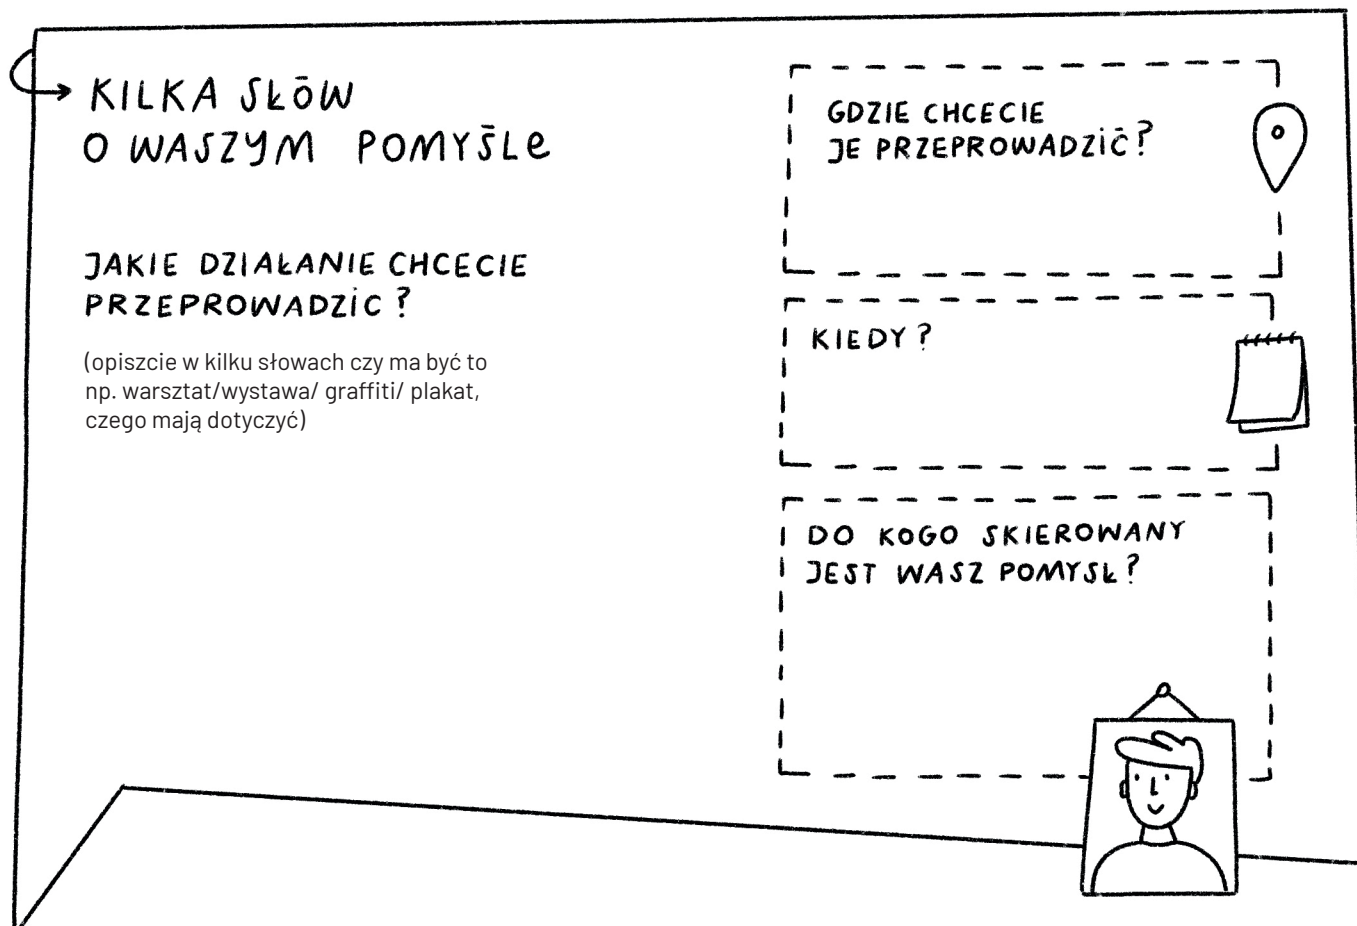 KILKA SŁÓW
O WASZYM POMYŚLE
JAKIE DZIAŁANIE CHCECIE
PRZEPROWADZIC?
(opiszcie w kilku słowach czy ma być to
np. warsztat/wystawa/ graffiti/ plakat,
czego mają dotyczyć)
GDZIE CHCECIE
JE PRZEPROWADZIĆ?
KIEDY?
DO KOGO SKIEROWANY
JEST WASZ POMYSŁ?